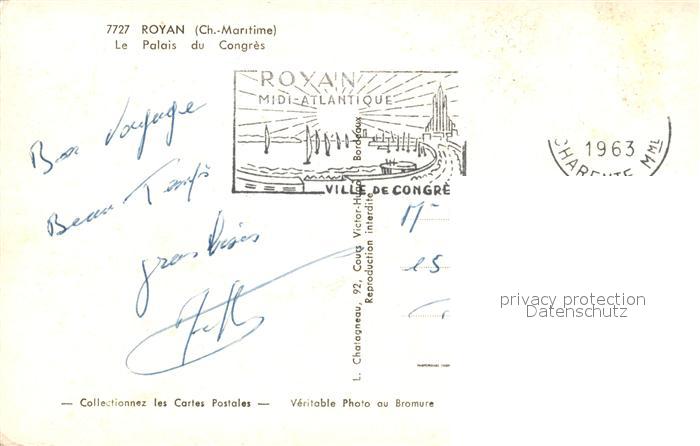 7727 ROYAN (Ch.-Maritime)
Le Palais du Congrès
ROYAN
MIDI-ATLANTIQUE
VILLE DE CONGRÈ
1963
CHARENTE MME
Bon Voyage
Beau Temps
gros bisous
M
15
L. Chatagneau, 92, Cours Victor-Hugo Bordeaux
Reproduction interdite
privacy protection
Datenschutz
— Collectionnez les Cartes Postales — Véritable Photo au Bromure